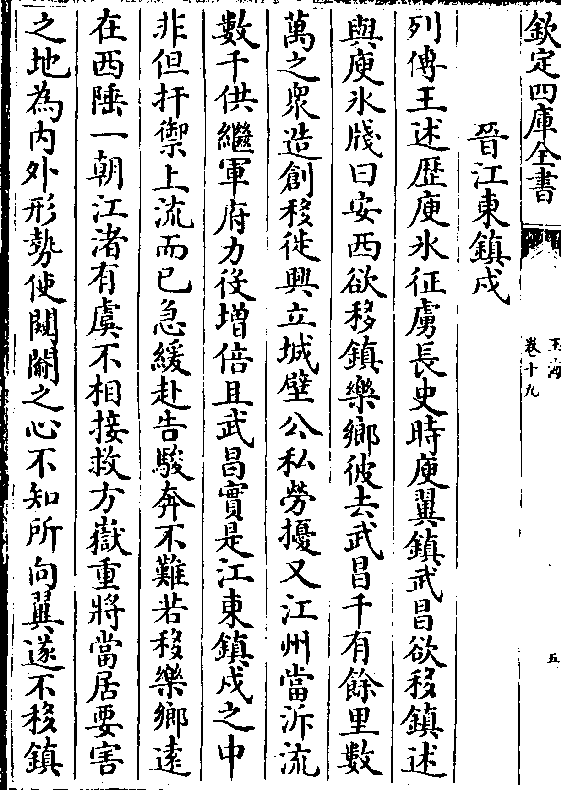 欽定四庫全書
玉海
卷十九
五
晉江東鎮戍
列傳王述歴庾氷征虜長史時庾翼鎮武昌欲移鎮述
與庾氷牋曰安西欲移鎮樂鄉彼去武昌千有餘里數
萬之衆造創移徙興立城壁公私勞擾又江州當泝流
數千供繼軍府力役增倍且武昌實是江東鎮戍之中
非但扞禦上流而已急緩赴告駿奔不難若移樂鄉逺
在西陲一朝江渚有虞不相接救方嶽重將當居要害
之地為内外形勢使闚𨵦之心不知所向翼遂不移鎮